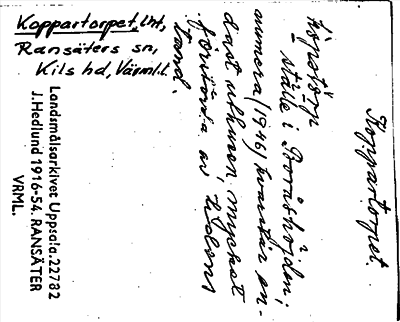 Koppartorpet, lht,
Ransäters sn,
Kils hd, Värml.l.
Koppartorpet.
ställe i Boråshöjden;
numera (1946) kvarstår en-
dast uthusen, mycket
förstörda av tidens
tand.
Landsmålsarkivet Uppsala. 22782
J. Hedlund 1916-54. RANSÄTER
VRML.